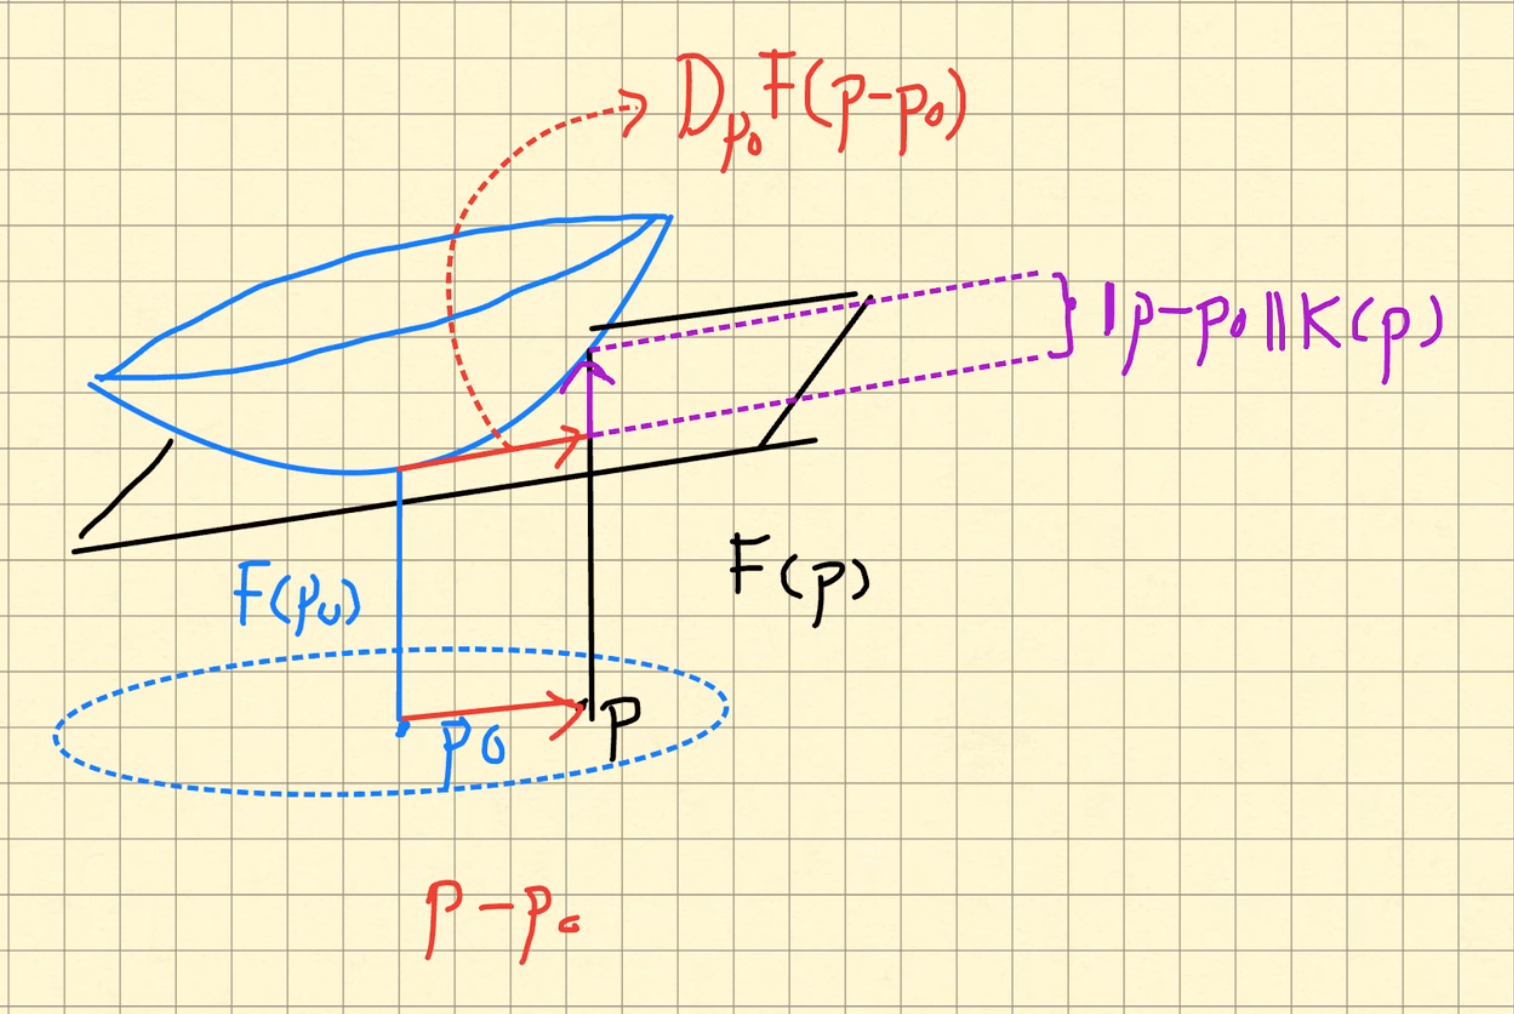 D_{p_0}F(p-p_0)
‖p-p_0‖K(p)
F(p)
F(p_0)
p
p_0
p-p_0